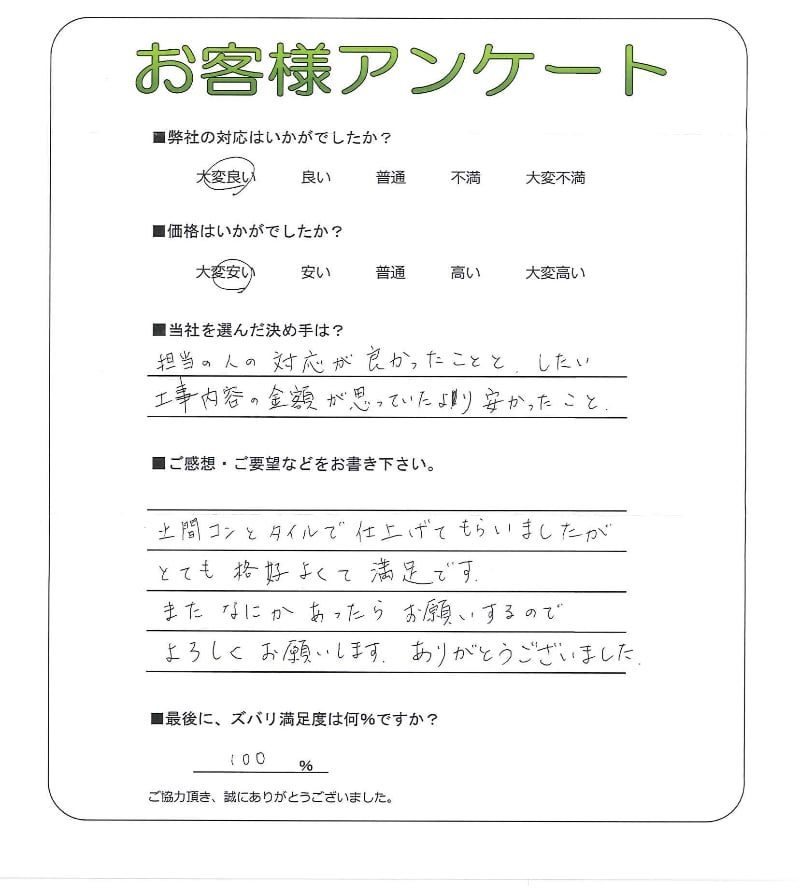 お客様アンケート
■弊社の対応はいかがでしたか？
大変良い 良い 普通 不満 大変不満
■価格はいかがでしたか？
大変安い 安い 普通 高い 大変高い
■当社を選んだ決め手は？
担当の人の対応が良かったことと、したい
工事内容の金額が思っていたより安かったこと、
■ご感想・ご要望などをお書き下さい。
土間コンとタイルで仕上げてもらいましたが
とても格好よくて満足です．
またなにかあったらお願いするので
よろしくお願いします．ありがとうございました．
■最後に、ズバリ満足度は何%ですか？
100 %
ご協力頂き、誠にありがとうございました。